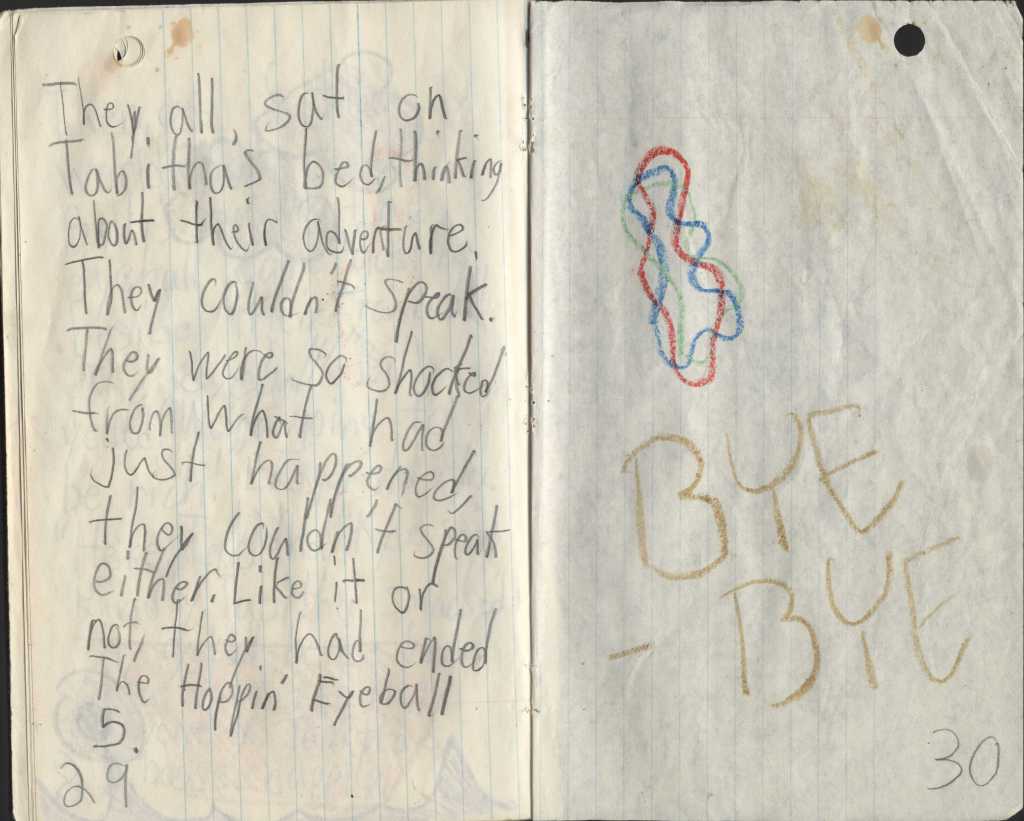 They all, sat on
Tabitha's bed, thinking
about their adventure.
They couldn't speak.
They were so shocked
from what had
just happened,
they couldn't speak
either. Like it or
not, they had ended
The Hoppin' Eyeball
5.
29
BYE
- BYE
30